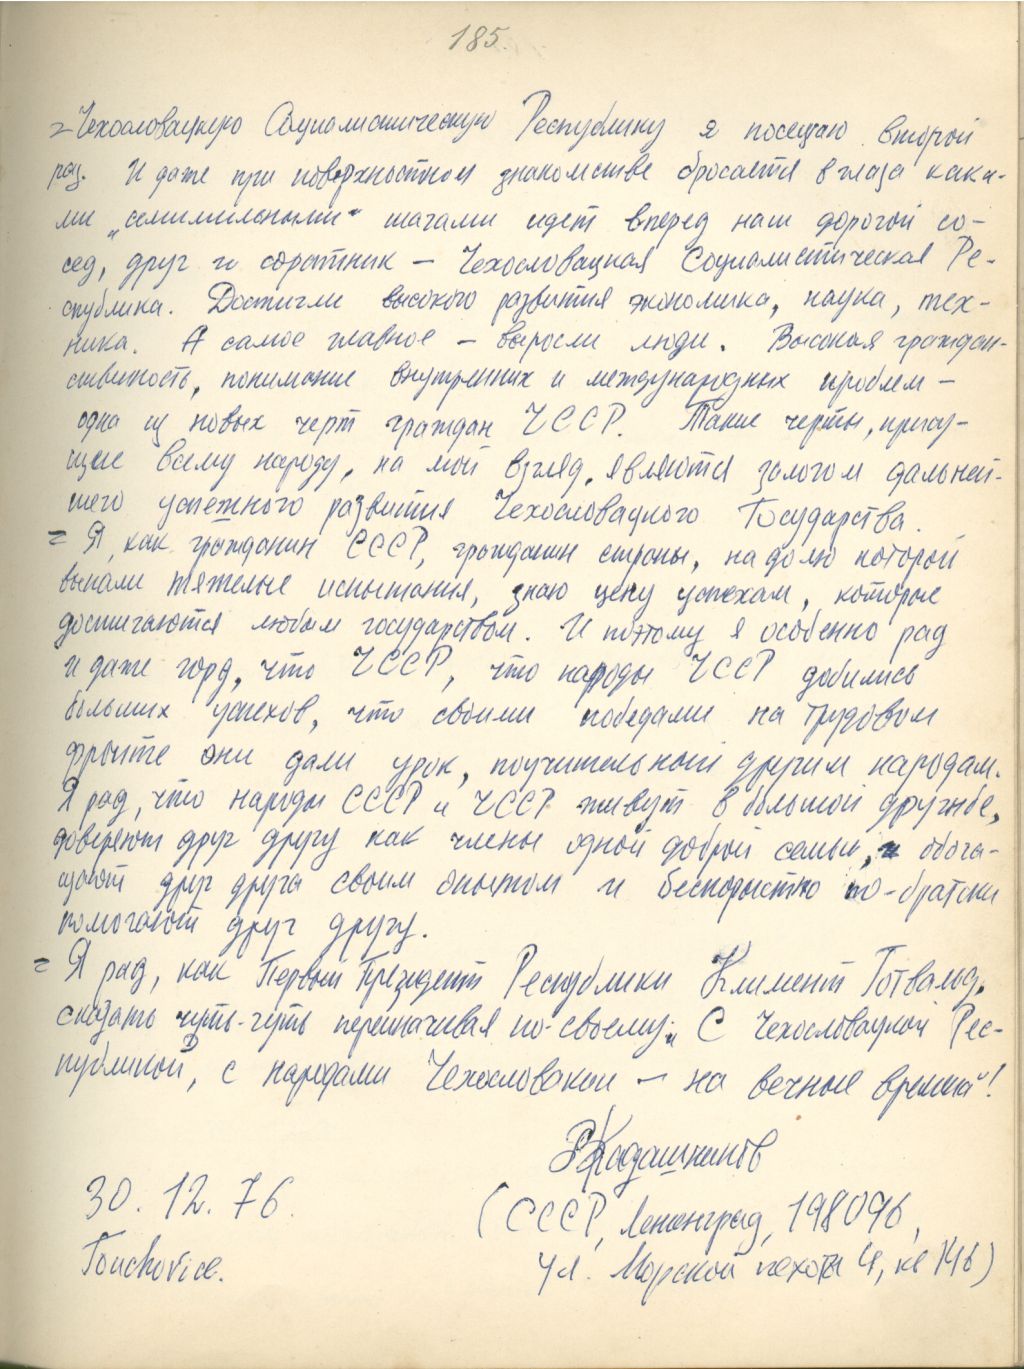 185.
= Чехословацкую Социалистическую Республику я посещаю второй
раз. И даже при поверхностном знакомстве бросается в глаза каки-
ми „семимильными“ шагами идет вперед наш дорогой со-
сед, друг и соратник — Чехословацкая Социалистическая Ре-
спублика. Достигли высокого развития экономика, наука, тех-
ника. А самое главное — выросли люди. Высокая граждан-
ственность, понимание внутренних и международных проблем —
одна из новых черт граждан ЧССР. Такие черты, прису-
щие всему народу, на мой взгляд, являются залогом дальней-
шего успешного развития Чехословацкого Государства.
= Я, как гражданин СССР, гражданин страны, на долю которой
выпали тяжелые испытания, знаю цену успехам, которые
достигаются любым государством. И поэтому я особенно рад
и даже горд, что ЧССР, что народы ЧССР добились
больших успехов, что своими победами на трудовом
фронте они дали урок, поучительный другим народам.
Я рад, что народы СССР и ЧССР живут в большой дружбе,
доверяют друг другу как члены одной доброй семьи, обога-
щают друг друга своим опытом и бескорыстно по-братски
помогают друг другу.
= Я рад, как Первый Президент Республики Климент Готвальд,
сказать чуть-чуть переиначивая по-своему: „С Чехословацкой Рес-
публикой, с народами Чехословакии — на вечные времена“!
(СССР, Ленинград, 198096,
30.12.76.
ул. Морской пехоты 4, кв 146)